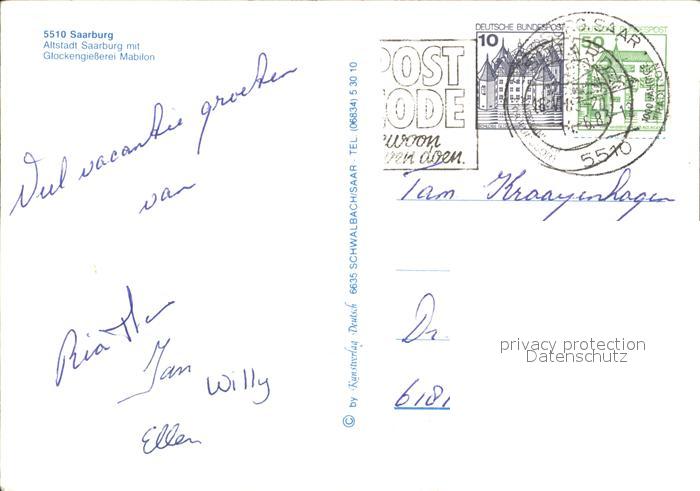 5510 Saarburg
Altstadt Saarburg mit
Glockengießerei Mabilon
Viel vacantie groeten
van
Ria
Jan
Willy
Ellen
© by Kunstverlag Deutsch 6635 SCHWALBACH/SAAR · TEL. (06834) 5 30 10
POST
CODE
gewoon
even doen.
DEUTSCHE BUNDESPOST
10
50
SAAR
5510
Tam Kraayenhagen
Dr.
6181
privacy protection
Datenschutz